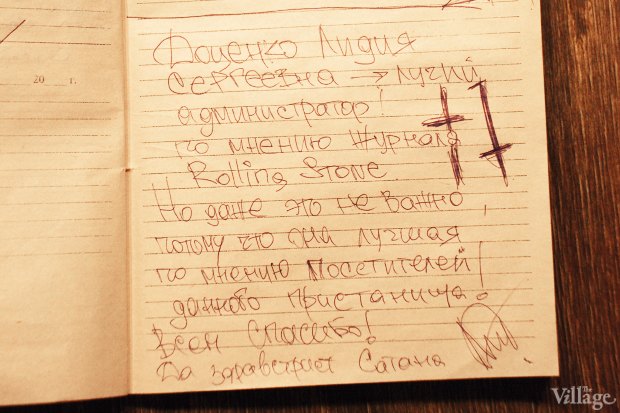 20 г.
Доценко Лидия
Сергеевна → лучий
администратор!
по мнению журнала
Rolling Stone
Но даже это не важно,
потому что она лучшая
по мнению посетителей
данного пристанища!
Всем спасибо!
Да здравствует Сатана
The Village